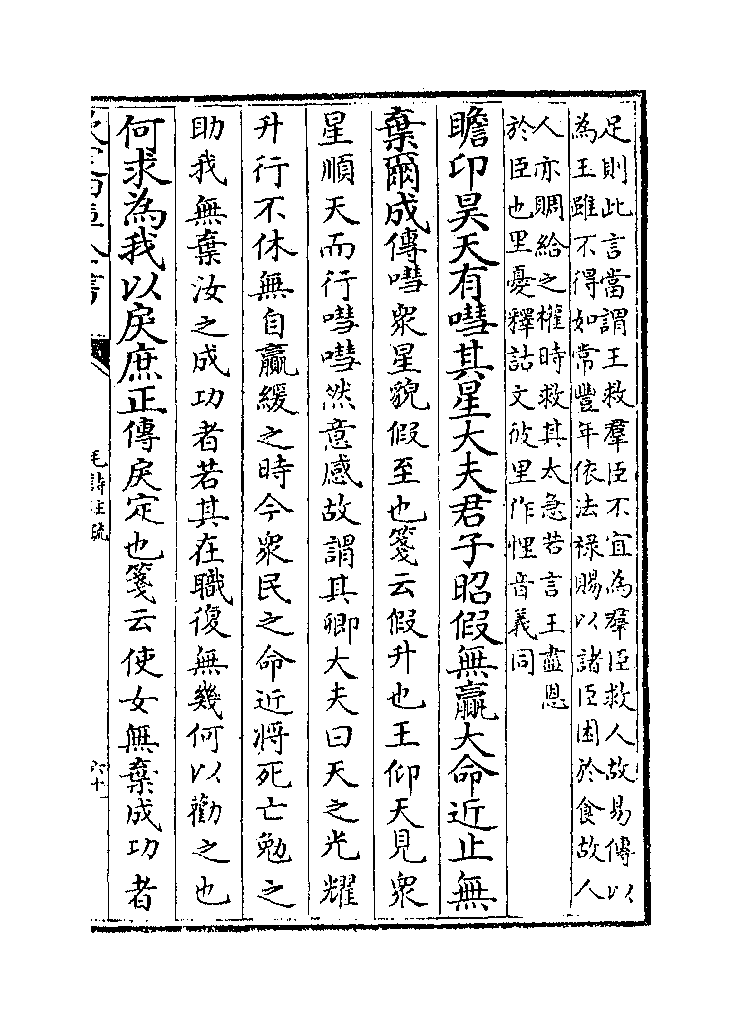 足則此言當謂王救羣臣不宜為羣臣救人故易傳以
為王雖不得如常豐年依法祿賜以諸臣困於食故人
人亦賙給之權時救其大急若言王盡恩
於臣也里憂釋詁文彼里作悝音義同
瞻卬昊天有嘒其星大夫君子昭假無贏大命近止無
棄爾成傳嘒衆星貌假至也箋云假升也王仰天見衆
星順天而行嘒嘒然意感故謂其卿大夫曰天之光耀
升行不休無自贏緩之時今衆民之命近將死亡勉之
助我無棄汝之成功者若其在職復無幾何以勸之也
何求為我以戾庶正傳戾定也箋云使女無棄成功者
毛詩注疏
六十